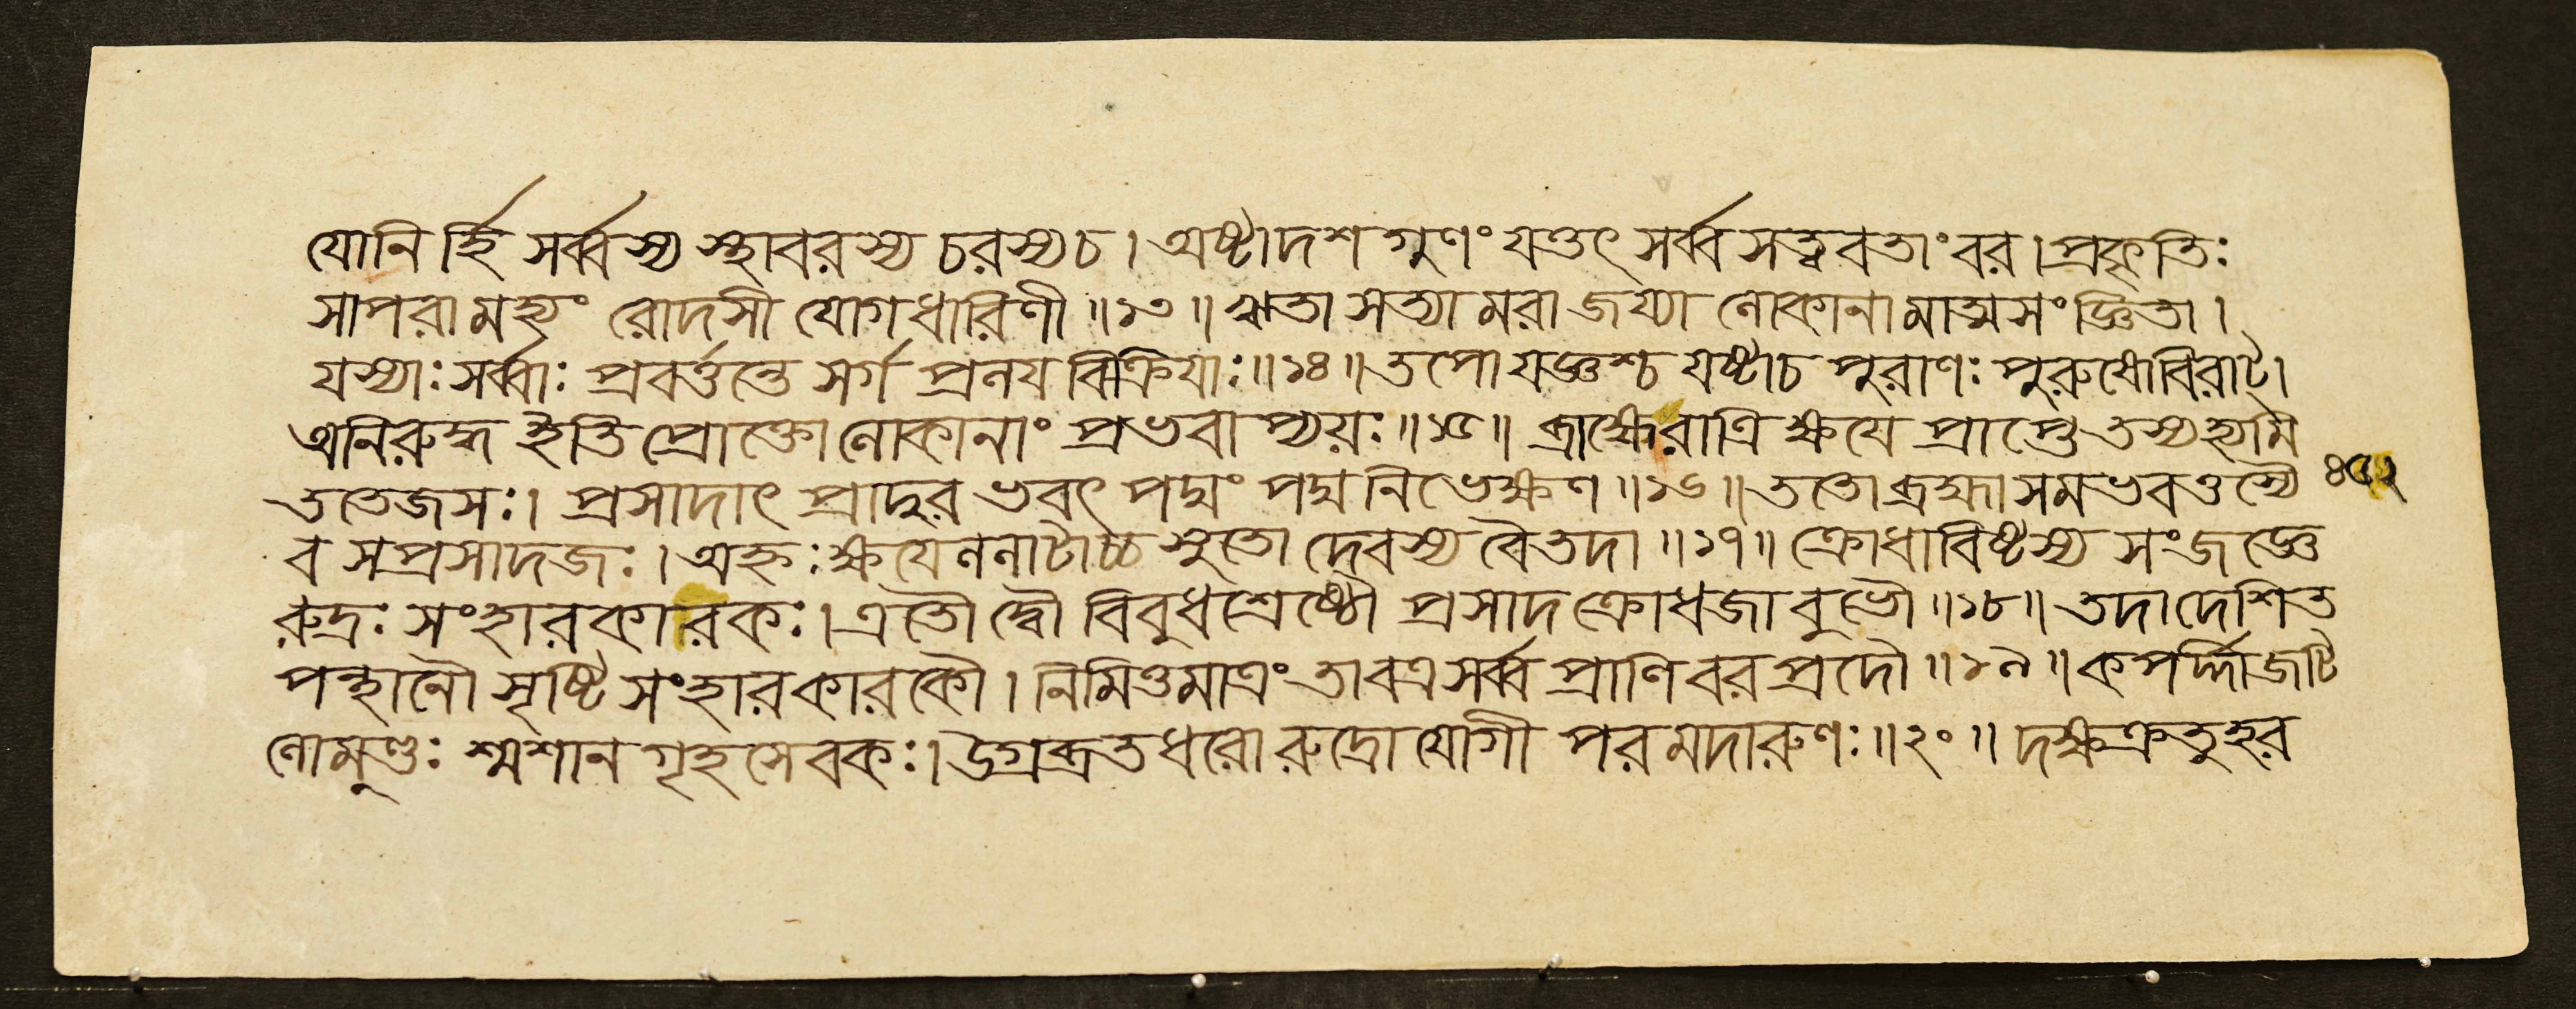 যোনি র্হি সর্ব্বস্য স্থাবরস্য চরস্যচ। অষ্টাদশ গুণং যত্তৎ সর্ব্ব সত্ত্ববতাং বর। প্রকৃতিঃ
সাপরা মহ্যং রোদসী যোগধারিণী॥১৩॥ ঋতা সত্যা মরা জয্যা লোকানা মাত্মসংজ্ঞিতা।
যস্যাঃ সর্ব্বাঃ প্রবর্ত্তন্তে সর্গ প্রলয় বিক্রিয়াঃ॥১৪॥ তপো যজ্ঞশ্চ যষ্টাচ পুরাণঃ পুরুষোবিরাট্।
অনিরুদ্ধ ইতি প্রোক্তো লোকানাং প্রভবাপ্যয়ঃ॥১৫॥ ব্রাহ্মেরাত্রি ক্ষয়ে প্রাপ্তে তস্যহ্যমি
ততেজসঃ। প্রসাদাৎ প্রাদুর ভবৎ পদ্মং পদ্ম নিভেক্ষণ॥১৬॥ ততো ব্রহ্মা সমভবত্তস্যৈ ৪৫২
ব সপ্রসাদজঃ। অহ্নঃ ক্ষয়ে ললাটাচ্চ সুতো দেবস্য বৈতদা॥১৭॥ ক্রোধাবিষ্টস্য সংজজ্ঞে
রুদ্রঃ সংহারকারকঃ। এতৌ দ্বৌ বিবুধ শ্রেষ্ঠৌ প্রসাদ ক্রোধজা বুভৌ॥১৮॥ তদাদেশিত
পন্থানৌ সৃষ্টি সংহারকারকৌ। নিমিত্তমাত্রং তাবত্র সর্ব্ব প্রাণি বর প্রদৌ॥১৯॥ কপর্দ্দীজটি
লোমুণ্ডঃ শ্মশান গৃহ সেবকঃ। উগ্রব্রতধরো রুদ্রো যোগী পরমদারুণঃ॥২০॥ দক্ষক্রতুহর